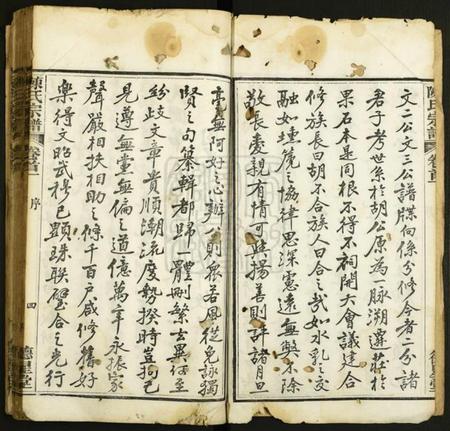 陳氏宗譜
卷首
文二公文三公譜牒向係分修今者二分諸
君子考世系於胡公原為一脉溯遷莊於
果石本是同根不得不祠開大會議建合
修族長曰胡不合族人曰合之哉如水乳之交
融如鍾簴之協律思深慮遠無弊不除
敬長愛親有情可興揚善則評諸月旦
毫無阿好之心辦 則眾若風從免詠獨
賢之句纂輯都歸一體刪繁去異何至
紛歧文章貴順潮流度勢揆時豈拘已
見遵無黨無偏之道億萬年永振家
聲嚴相扶相助之條千百戶咸修舊好
樂得文昭武穆已顯珠聯璧合之光行
陳氏宗譜
卷首
序
四
德星堂